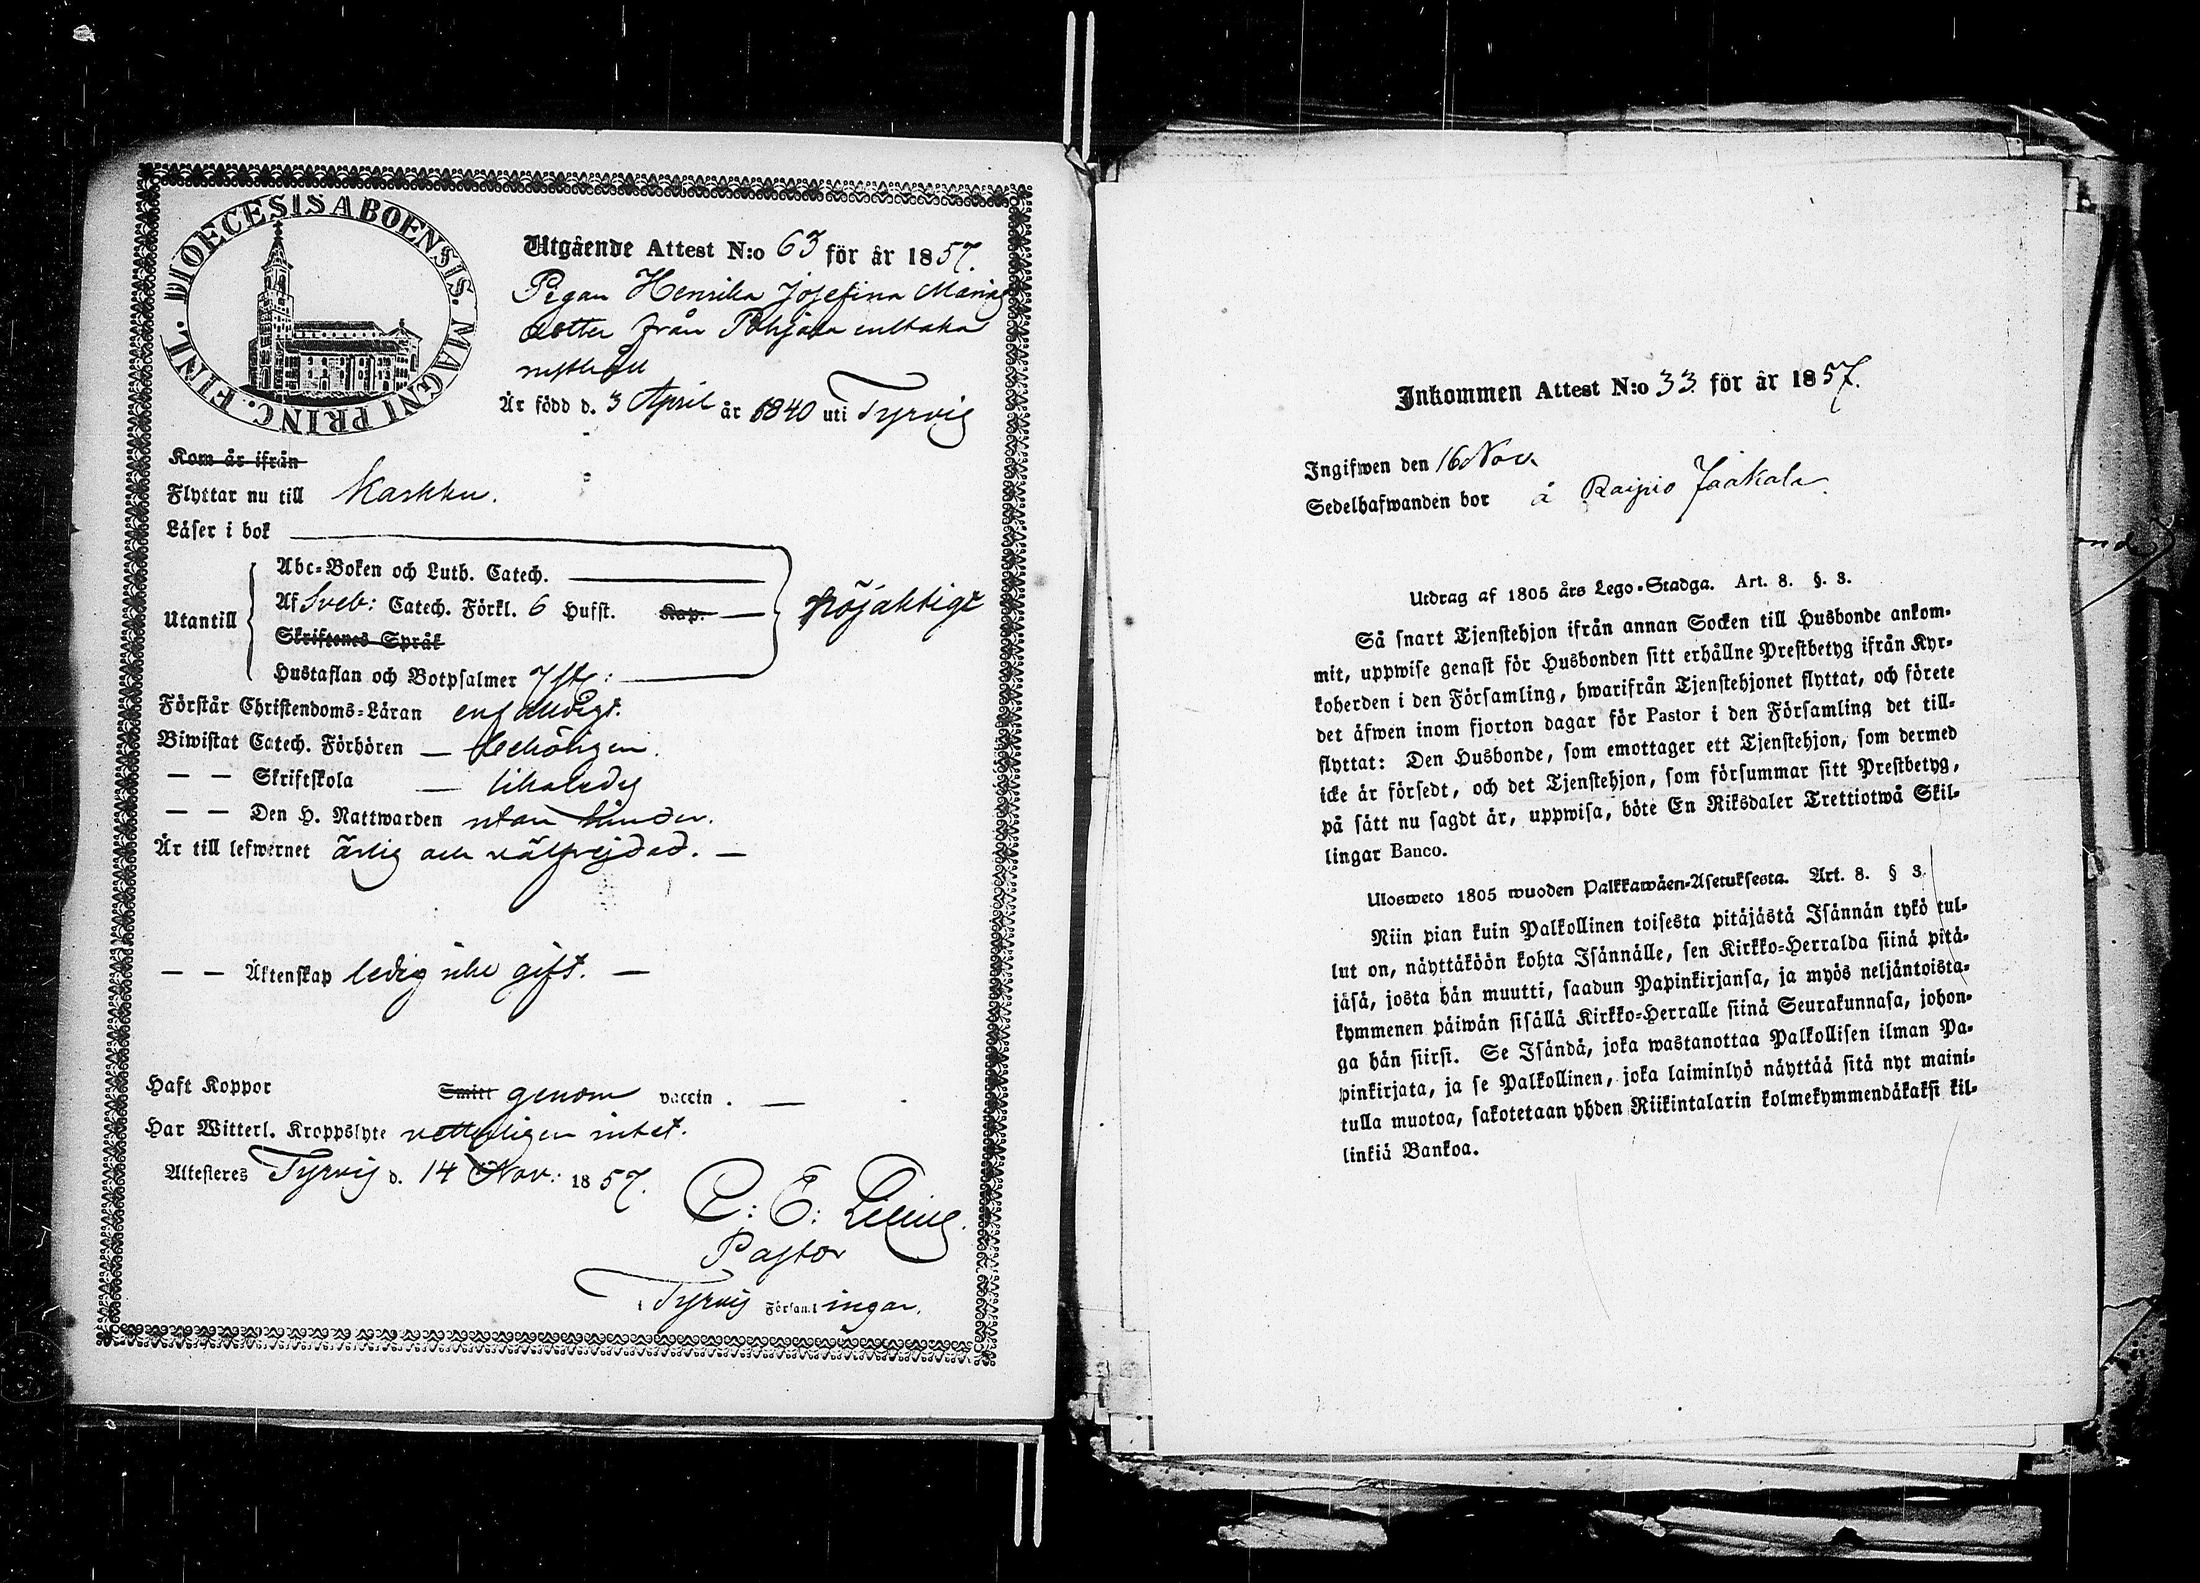 DIOECESIS ABOENSIS. MAGNI PRINC. FINL.
Utgående Attest N:o 63 för år 1857.
Pigan Henrika Josefina Marias
dotter från Pohjala
Är född d. 3 April år 1840 uti Tyrvis
Kom år ifrån
Flyttar nu till Karkku.
Läser i bok
Abc-Boken och Luth. Catech.
Utantill
Af Sveb: Catech. Förkl. 6 Hufst. Kap.
nöjaktigt
Skriftenes Språk
Hustaflan och Botpsalmer
Förstår Christendoms-Läran enfaldigt.
Biwistat Catech. Förhören — behörigen.
— — Skriftskola — likaledes
— — Den H. Nattwarden utan hinder.
Är till lefwernet ärlig och välfrejdad. —
— — Äktenskap ledig icke gift. —
Haft Koppor Smitt genom vaccin. —
Har Witterl. Kroppslyte vetterligen intet.
Attesteres Tyrvis d. 14 Nov: 1857.
C: E:
Pastor
i Tyrvis Församlingar.
Inkommen Attest N:o 33 för år 1857.
Ingifwen den 16 Nov.
Sedelhafwanden bor å Raipio Jaakala.
Utdrag af 1805 års Lego-Stadga. Art. 8. §. 3.
Så snart Tjenstehjon ifrån annan Socken till Husbonde ankom-
mit, uppwise genast för Husbonden sitt erhållne Prestbetyg ifrån Kyr-
koherden i den Församling, hwarifrån Tjenstehjonet flyttat, och förete
det äfwen inom fjorton dagar för Pastor i den Församling det till-
flyttat: Den Husbonde, som emottager ett Tjenstehjon, som dermed
icke är försedt, och det Tjenstehjon, som försummar sitt Prestbetyg,
på sätt nu sagdt är, uppwisa, böte En Riksdaler Trettiotwå Skil-
lingar Banco.
Ulosweto 1805 wuoden Palkkawäen-Asetuksesta. Art. 8. § 3.
Niin pian kuin Palkollinen toisesta pitäjästä Isännän tykö tul-
lut on, näyttäköön kohta Isännälle, sen Kirkko-Herralda siinä pitä-
jäsä, josta hän muutti, saadun Papinkirjansa, ja myös neljäntoista-
kymmenen päiwän sisällä Kirkko-Herralle siinä Seurakunnasa, johon-
ga hän siirsi. Se Isändä, joka wastanottaa Palkollisen ilman Pa-
pinkirjata, ja se Palkollinen, joka laiminlyö näyttää sitä nyt maini-
tulla muotoa, sakotetaan yhden Riikintalarin kolmekymmendäkaksi kil-
linkiä Bankoa.